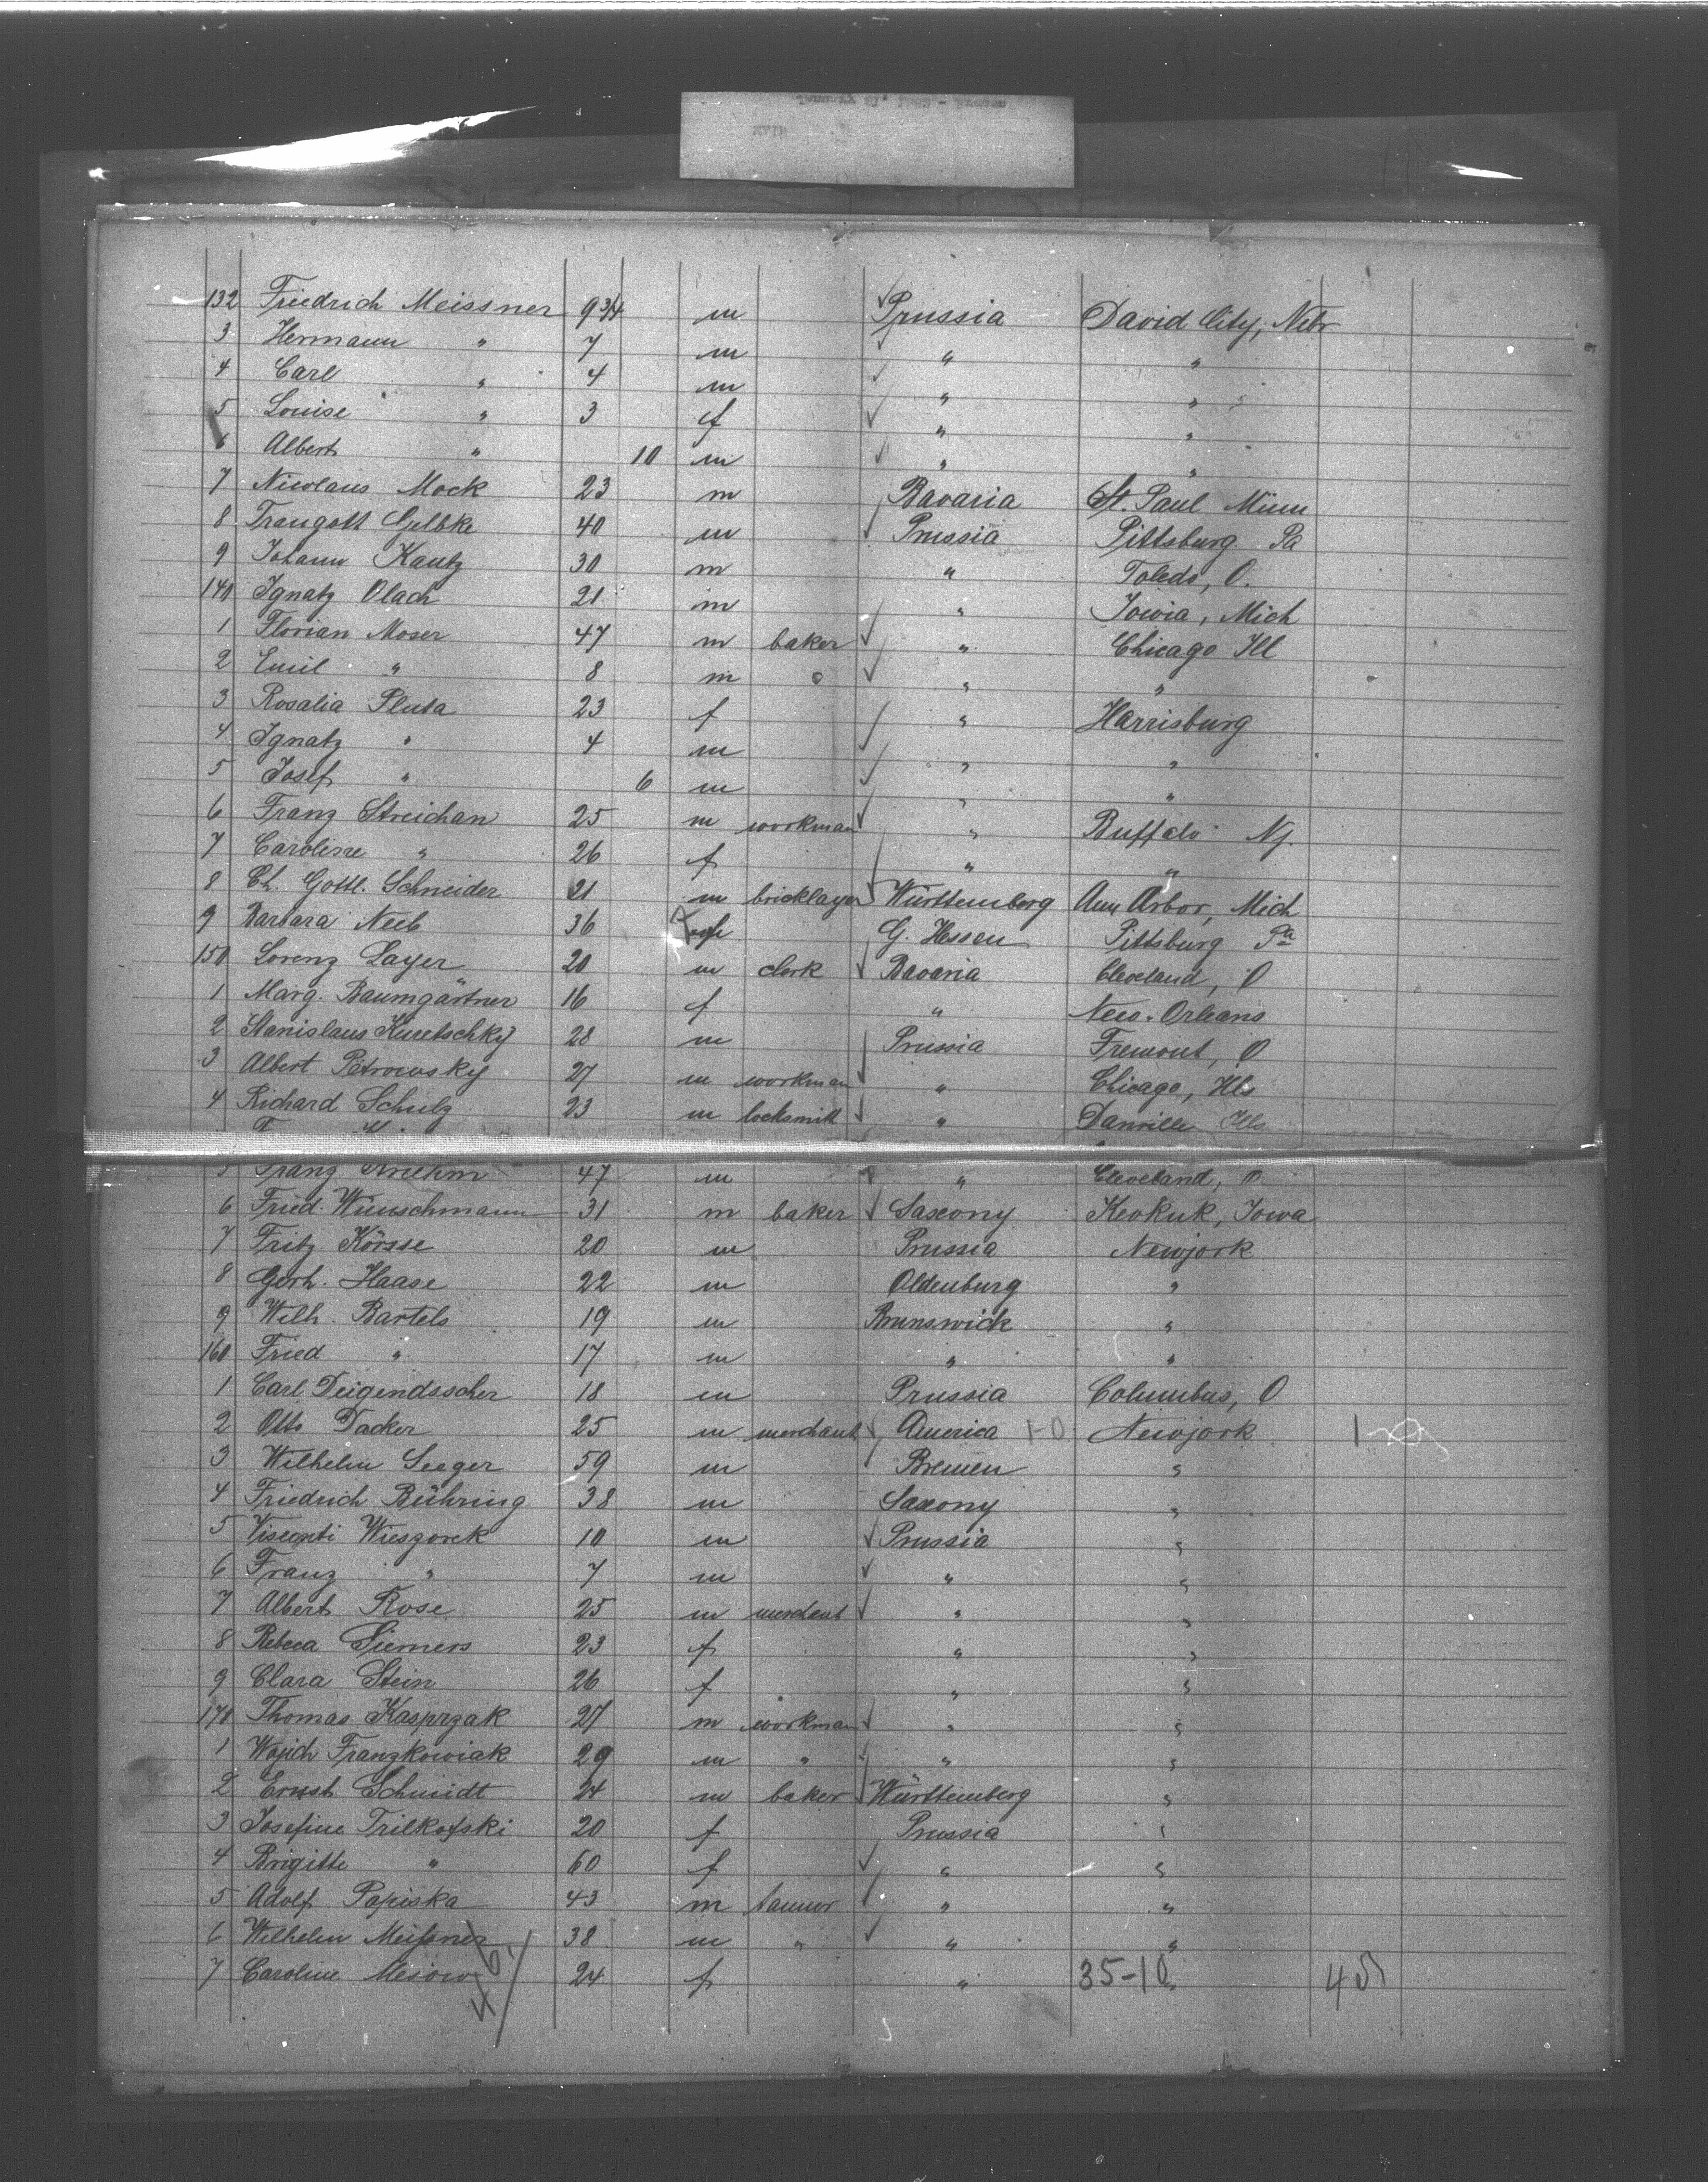 132 Friedrich Meissner 9 3/4 m Prussia David City, Nebr
3 Hermann " 7 m " "
4 Carl " 4 m " "
5 Louise " 3 f " "
6 Albert " 10 m " "
7 Nicolaus Mock 23 m Bavaria St. Paul Minn
8 Traugott Gelbke 40 m Prussia Pittsburg Pa
9 Johann Kautz 30 m " Toledo, O.
140 Ignatz Olach 21 m " Iowia, Mich
1 Florian Moser 47 m baker " Chicago Ill
2 Emil " 8 m " "
3 Rosalia Pluta 23 f " Harrisburg
4 Ignatz " 4 m " "
5 Josef " 6 m " "
6 Franz Streichan 25 m workman " Buffalo Nj.
7 Caroline " 26 f " "
8 Ch. Gottl. Schneider 21 m bricklayer Württemberg Ann Arbor, Mich
9 Barbara Neeb 36 f G. Hessen Pittsburg Pa
150 Lorenz Layer 20 m clerk Bavaria Cleveland, O
1 Marg. Baumgärtner 16 f " New-Orleans
2 Stanislaus Kuretschky 28 m Prussia Fremont, O
3 Albert Petrowsky 27 m workman " Chicago, Ills
4 Richard Schulz 23 m locksmith " Danville Ills
5 Franz 47 m " Cleveland, O
6 Fried. Wunschmann 31 m baker Saxony Keokuk, Iowa
7 Fritz Körsse 20 m Prussia Newjork
8 Gerh. Haase 22 m Oldenburg "
9 Wilh. Bartels 19 m Brunswick "
160 Fried " 17 m " "
1 Carl Deigendsscher 18 m Prussia Columbus, O
2 Otto Dacker 25 m merchant America 1-0 Newjork 1
3 Wilhelm Seeger 59 m Bremen "
4 Friedrich Bühring 38 m Saxony "
5 Wieszorek 10 m Prussia "
6 Franz " 7 m " "
7 Albert Rose 25 m merchant " "
8 Rebeca Siemers 23 f " "
9 Clara Stein 26 f " "
170 Thomas Kasprzak 27 m workman " "
1 Wojich Franzkowiak 29 m " " "
2 Ernst Schmidt 24 m baker Württemberg "
3 Josefine Trilkofski 20 f Prussia "
4 Brigitte " 60 f " "
5 Adolf Papiska 43 m tanner " "
6 Wilhelm Meißner 38 m " " "
7 Caroline Mesow 24 f " 35-10 "